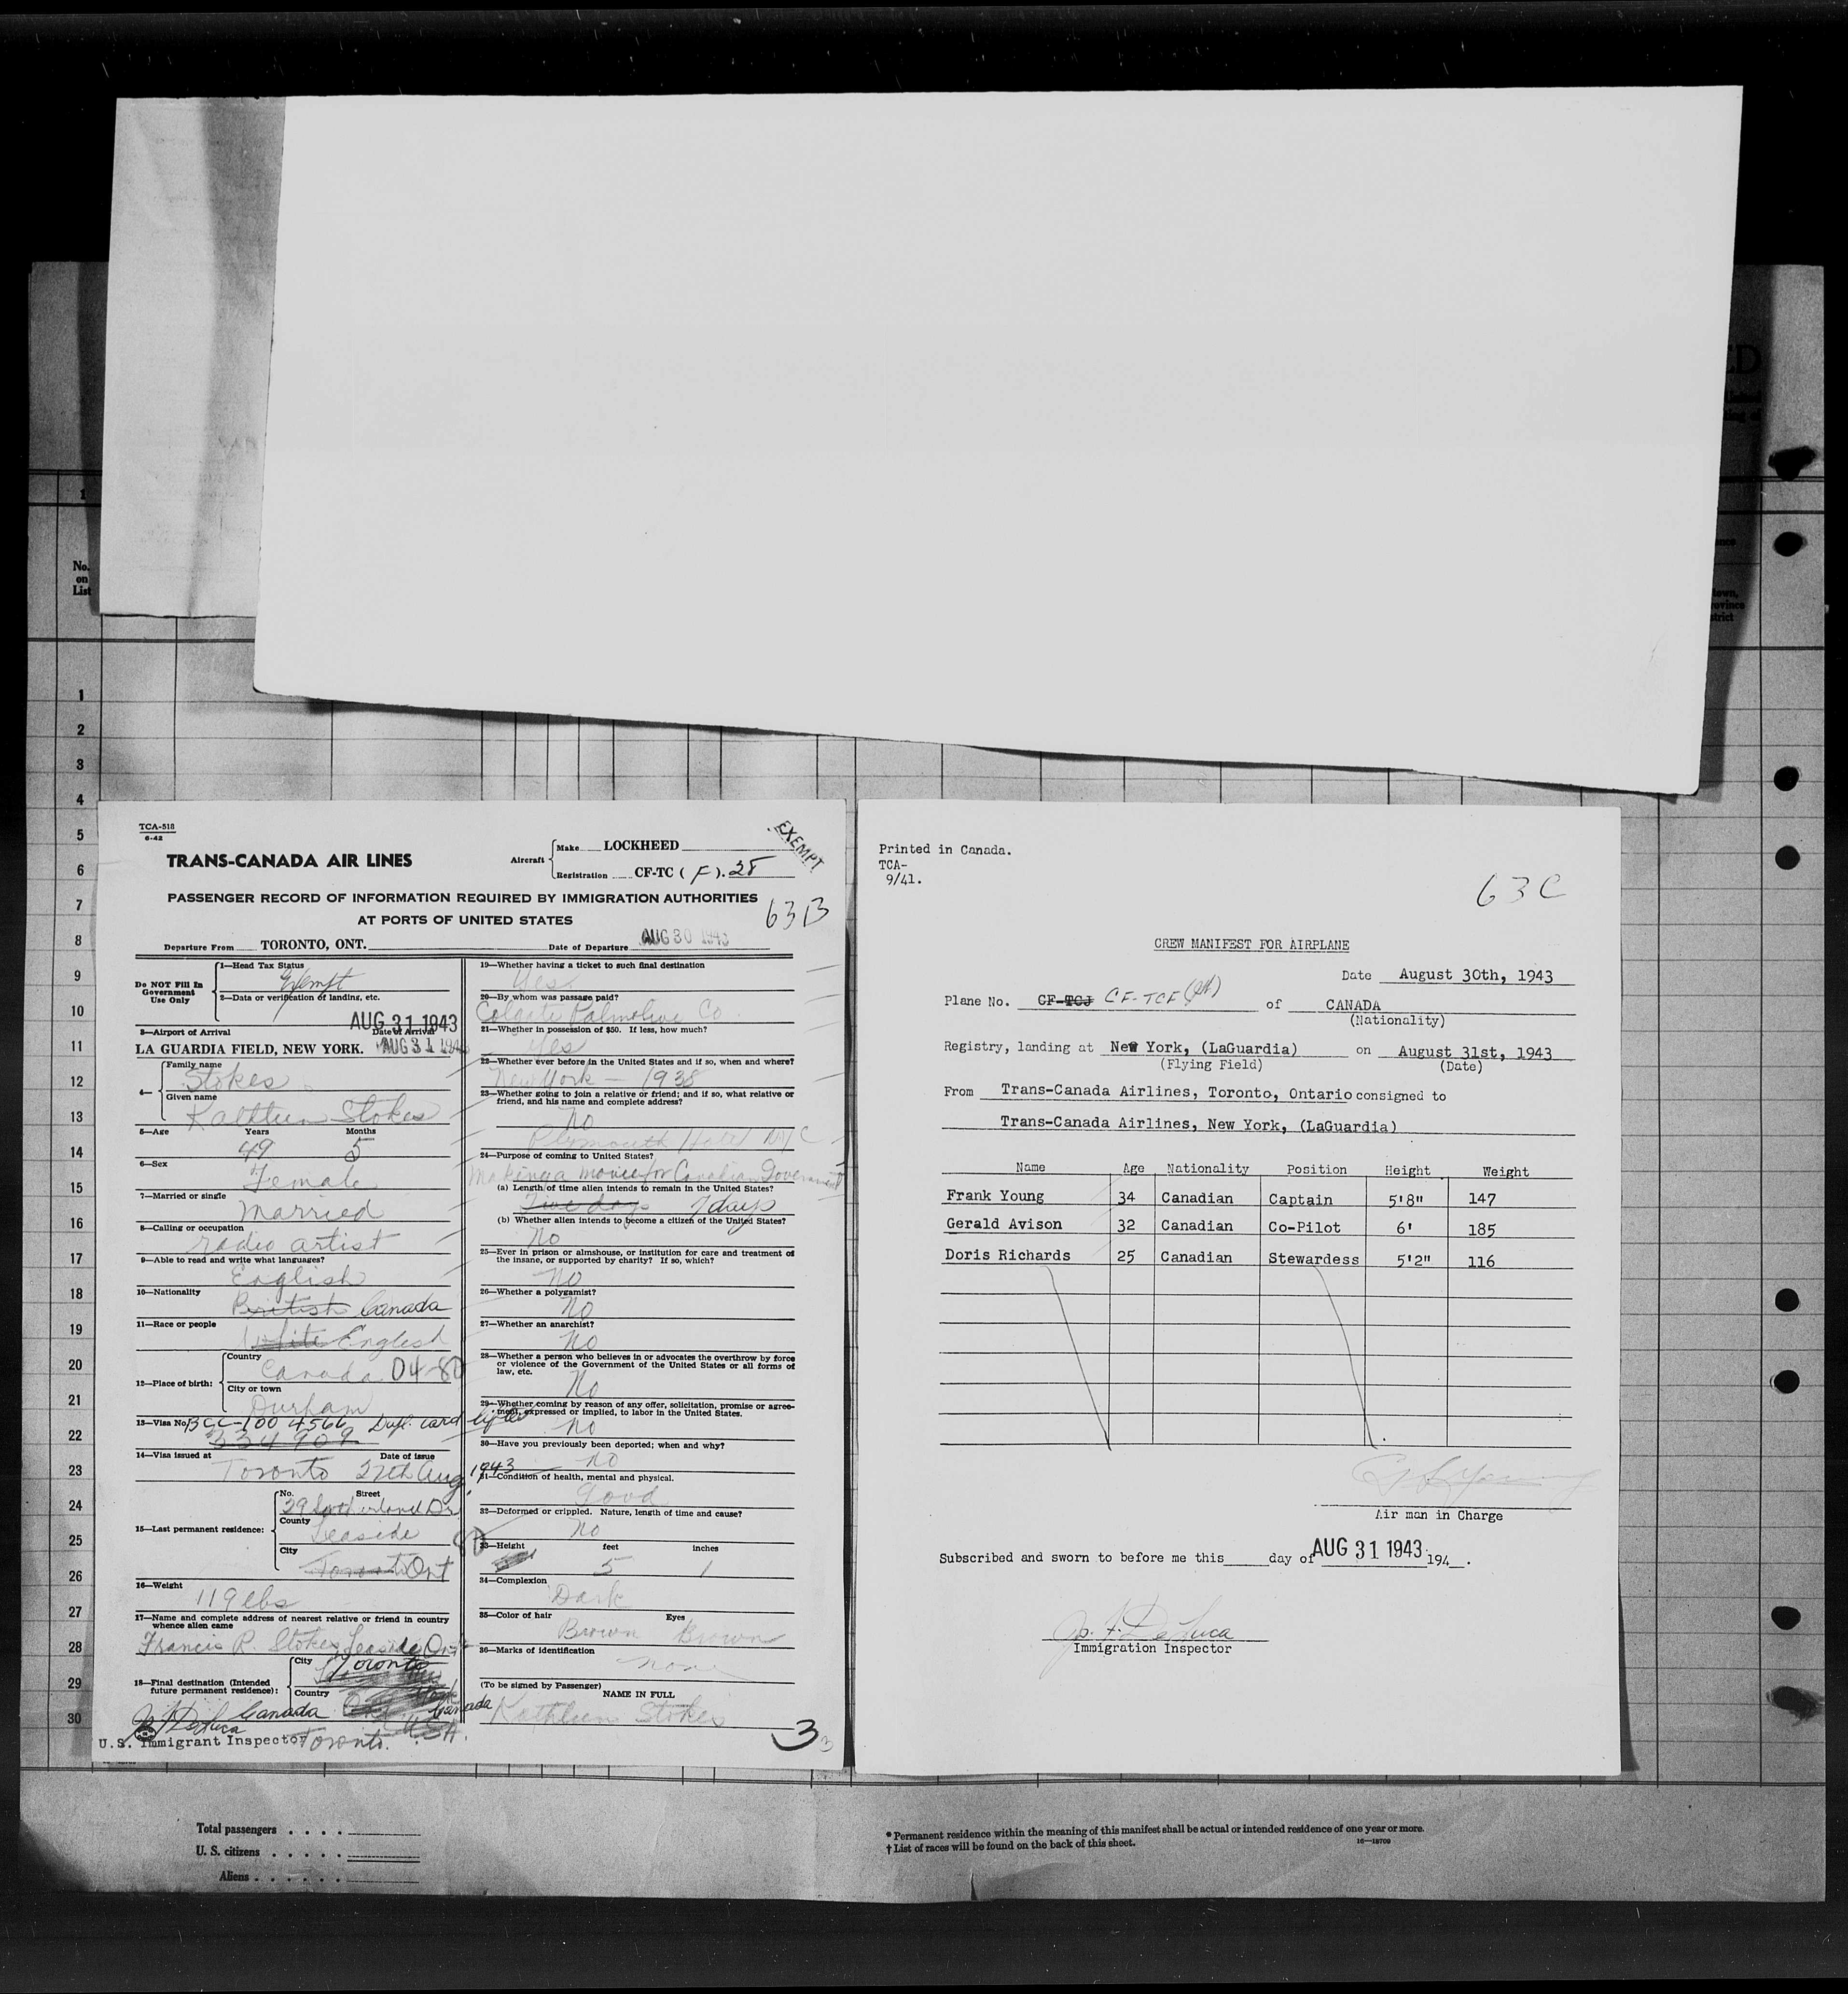 No.
on
List
1
2
3
4
5
6
7
8
9
10
11
12
13
14
15
16
17
18
19
20
21
22
23
24
25
26
27
28
29
30
TCA-518
6-42
TRANS-CANADA AIR LINES
Aircraft
Make LOCKHEED
Registration CF-TC (F). 28
EXEMPT
PASSENGER RECORD OF INFORMATION REQUIRED BY IMMIGRATION AUTHORITIES
AT PORTS OF UNITED STATES
63B
Departure From TORONTO, ONT.
Date of Departure AUG 30 1943
Do NOT Fill In
Government
Use Only
1—Head Tax Status
Exempt
2—Data or verification of landing, etc.
AUG 31 1943
3—Airport of Arrival
Date of Arrival
LA GUARDIA FIELD, NEW YORK. AUG 31 1943
4—
Family name
Stokes
Given name
Kathleen Stokes
5—Age Years Months
49 5
6—Sex
Female
7—Married or single
Married
8—Calling or occupation
radio artist
9—Able to read and write what languages?
English
10—Nationality
British Canada
11—Race or people
White English
12—Place of birth:
Country
Canada 04-80
City or town
Durham
13—Visa No. BCC-100 4566 Dupl. card lifted
334909
14—Visa issued at Date of issue
Toronto 27th Aug. 1943
15—Last permanent residence:
No. Street
29 Sutherland Dr.
County
Leaside
City
Toronto Ont
80
16—Weight
119 lbs
17—Name and complete address of nearest relative or friend in country
whence alien came
Francis R. Stokes Leaside Ont
18—Final destination (Intended
future permanent residence):
City
Toronto
Country
Canada
Canada
U.S.A.
Toronto.
U.S. Immigrant Inspector
19—Whether having a ticket to such final destination
Yes
20—By whom was passage paid?
Colgate Palmolive Co.
21—Whether in possession of $50. If less, how much?
Yes
22—Whether ever before in the United States and if so, when and where?
New York — 1938
23—Whether going to join a relative or friend; and if so, what relative or
friend, and his name and complete address?
No
Plymouth Hotel NYC
24—Purpose of coming to United States?
Making a movie for Canadian Government
(a) Length of time alien intends to remain in the United States?
Five days 7 days
(b) Whether alien intends to become a citizen of the United States?
No
25—Ever in prison or almshouse, or institution for care and treatment of
the insane, or supported by charity? If so, which?
No
26—Whether a polygamist?
No
27—Whether an anarchist?
No
28—Whether a person who believes in or advocates the overthrow by force
or violence of the Government of the United States or all forms of
law, etc.
No
29—Whether coming by reason of any offer, solicitation, promise or agree-
ment, expressed or implied, to labor in the United States.
No
30—Have you previously been deported; when and why?
No
31—Condition of health, mental and physical.
Good
32—Deformed or crippled. Nature, length of time and cause?
No
33—Height feet inches
5 1
34—Complexion
Dark
35—Color of hair Eyes
Brown Brown
36—Marks of identification
none
(To be signed by Passenger)
NAME IN FULL
Kathleen Stokes
3
3
Printed in Canada.
TCA-
9/41.
63C
CREW MANIFEST FOR AIRPLANE
Date August 30th, 1943
Plane No. CF-TCJ CF-TCF of CANADA
(Nationality)
Registry, landing at New York, (LaGuardia) on August 31st, 1943
(Flying Field) (Date)
From Trans-Canada Airlines, Toronto, Ontario consigned to
Trans-Canada Airlines, New York, (LaGuardia)
Name Age Nationality Position Height Weight
Frank Young 34 Canadian Captain 5'8" 147
Gerald Avison 32 Canadian Co-Pilot 6' 185
Doris Richards 25 Canadian Stewardess 5'2" 116
Air man in Charge
Subscribed and sworn to before me this day of AUG 31 1943 194 .
Immigration Inspector
Total passengers . . . .
U. S. citizens . . . . .
Aliens . . . . . .
* Permanent residence within the meaning of this manifest shall be actual or intended residence of one year or more.
† List of races will be found on the back of this sheet.
16—18709